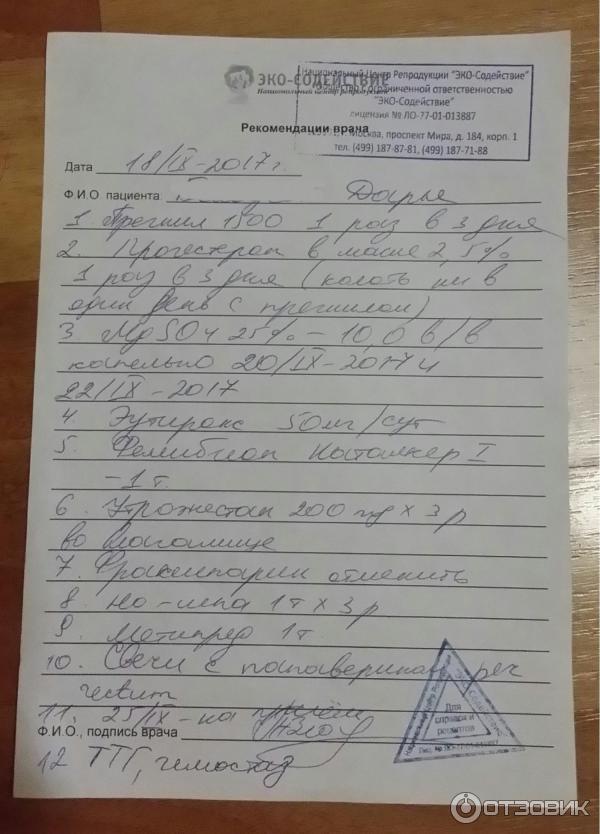 ЭКО-СОДЕЙСТВИЕ
Национальный центр репродукции
Национальный Центр Репродукции "ЭКО-Содействие"
Общество с ограниченной ответственностью
"ЭКО-Содействие"
лицензия № ЛО-77-01-013887
Москва, проспект Мира, д. 184, корп. 1
тел. (499) 187-87-81, (499) 187-71-88
Рекомендации врача
Дата 18/IX-2017г.
Ф.И.О пациента: Дарье
1. Прегнил 1500 1 раз в 3 дня
2. Прогестерон в масле 2,5%
1 раз в 3 дня (колоть их в
один день с прегнилом)
3. MgSO4 25% - 10,0 в/в
капельно 20/IX-2017 и
22/IX-2017
4. Эутирокс 50мг/сут
5. Фемибион Наталкер I
- 1 т.
6. Утрожестан 200 мг x 3 р
во влагалище
7. Фраксипарин отменить
8. Но-шпа 1т x 3р
9. Метипред 1т.
10. Свечи с папаверином рек
11. 25/IX - на приём
Ф.И.О., подпись врача
12 ТТГ, гемостаз
Для
справок и
рецептов
ОТЗОВИК